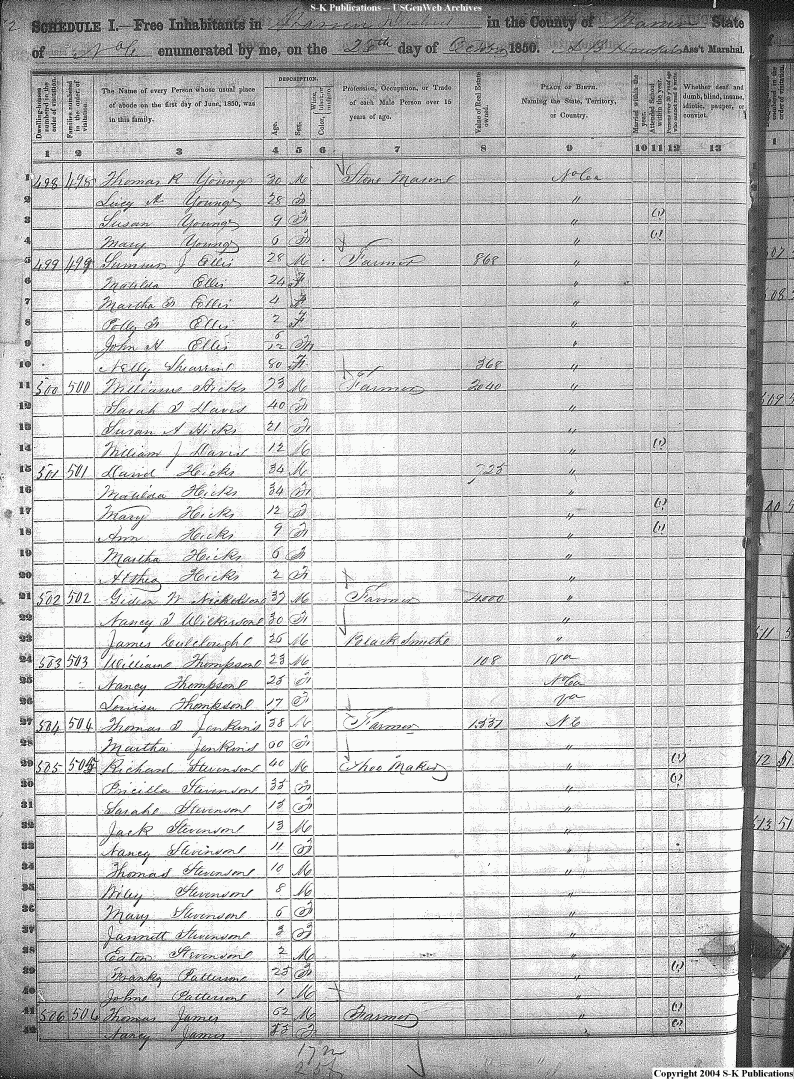 S-K Publications -- USGenWeb Archives
2 SCHEDULE I.—Free Inhabitants in in the County of Warren State
of N Ca enumerated by me, on the 25th day of 1850. Ass't Marshal.
Dwelling-houses numbered in the order of visitation.
Families numbered in the order of visitation.
The Name of every Person whose usual place of abode on the first day of June, 1850, was in this family.
DESCRIPTION.
Age.
Sex.
Color, White, black, or mulatto.
Profession, Occupation, or Trade of each Male Person over 15 years of age.
Value of Real Estate owned.
PLACE OF BIRTH. Naming the State, Territory, or Country.
Married within the year.
Attended School within the year.
Persons over 20 y'rs of age who cannot read & write.
Whether deaf and dumb, blind, insane, idiotic, pauper, or convict.
1 2 3 4 5 6 7 8 9 10 11 12 13
1 498 498 Thomas R Young 30 M Stone Mason No Ca
2 Lucy A Young 28 F "
3 Susan Young 9 F " (1)
4 Mary Young 6 F " (1)
5 499 499 J Ellis 28 M Farmer 868 "
6 Matilda Ellis 24 F "
7 Martha E Ellis 4 F "
8 Polly F Ellis 2 F "
9 John H Ellis 6/12 M "
10 Nelly Shearrin 80 F 368 "
11 500 500 William Hicks 73 M Farmer 2040 "
12 Sarah T Davis 40 F "
13 Susan A Hicks 21 F "
14 William J Davis 12 M " (1)
15 501 501 David Hicks 34 M 725 "
16 Matilda Hicks 34 F "
17 Mary Hicks 12 F " (1)
18 Ann Hicks 9 F " (1)
19 Martha Hicks 6 F "
20 Althea Hicks 2 F "
21 502 502 Gideon W Nickelson 37 M Farmer 4000 "
22 Nancy T Wilkerson 30 F "
23 James 25 M Black Smith "
24 503 503 William Thompson 23 M 108 Va
25 Nancy Thompson 25 F No Ca
26 Louisa Thompson 17 F Va
27 504 504 Thomas D Jenkins 38 M Farmer 1337 N C
28 Martha Jenkins 60 F "
29 505 505 Richard Stevenson 40 M Shoe Maker " (1)
30 Pricilla Stevenson 35 F " (1)
31 Sarah Stevenson 15 F "
32 Jack Stevenson 13 M "
33 Nancy Stevenson 11 F "
34 Thomas Stevenson 10 M "
35 Wiley Stevenson 8 M "
36 Mary Stevenson 6 F "
37 Jannett Stevenson 3 F "
38 Eaton Stevenson 2 M "
39 Franky Patterson 25 F " (1)
40 John Patterson 1 M "
41 506 506 Thomas James 62 M Farmer " (1)
42 Nancy James F " (1)
Copyright 2004 S-K Publications